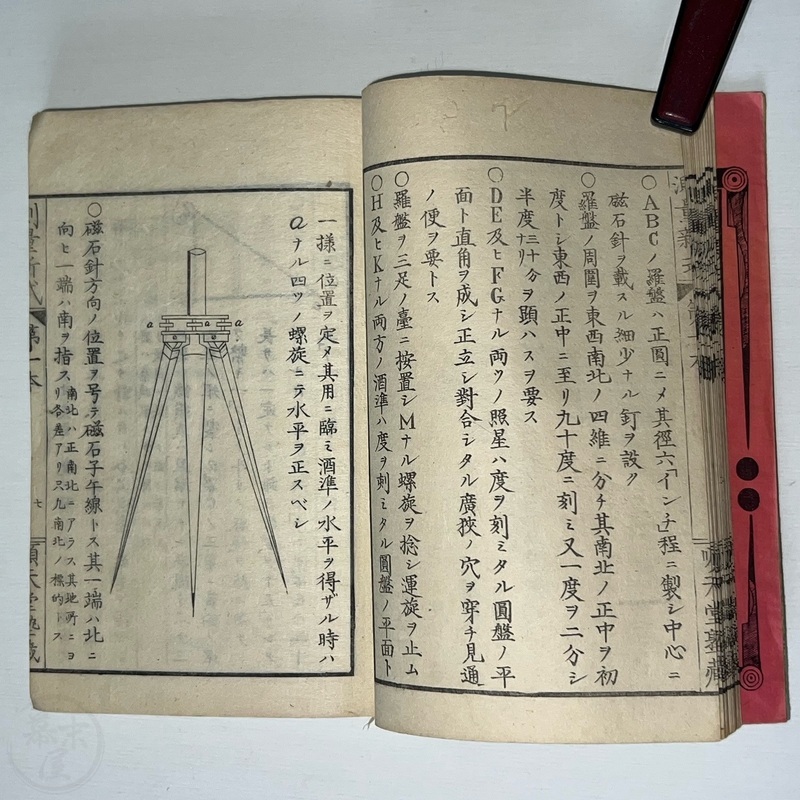 ○ABCノ羅盤ハ正圓ニメ其徑六「インチ」程ニ製シ中心ニ
磁石針ヲ載スル細少ナル釘ヲ設ク
○羅盤ノ周圍ヲ東西南北ノ四維ニ分チ其南北ノ正中ヲ初
度トシ東西ノ正中ニ至リ九十度ニ刻ミ又一度ヲ二分シ
半度三十分ナリヲ顕ハスヲ要ス
○DE及ヒFGナル両ツノ照星ハ度ヲ刻ミタル圓盤ノ平
面ト直角ヲ成シ正立シ對合シタル廣狹ノ穴ヲ穿チ見通
ノ便ヲ要トス
○羅盤ヲ三足ノ臺ニ按置シMナル螺旋ヲ捻シ運旋ヲ止ム
○H及ヒKナル両方ノ酒準ハ度ヲ刻ミタル圓盤ノ平面ト
一様ニ位置ヲ定メ其用ニ臨ミ酒準ノ水平ヲ得ザル時ハ
aナル四ツノ螺旋ニテ水平ヲ正スベシ
a a a
○磁石針方向ノ位置ヲ号テ磁石子午線トス其一端ハ北ニ
向ヒ一端ハ南ヲ指ス南北ハ正南北ニアラス其地所ニヨリ各差アリ只九南北ノ標的トス
第一本
七
順天堂塾蔵
順天堂塾蔵